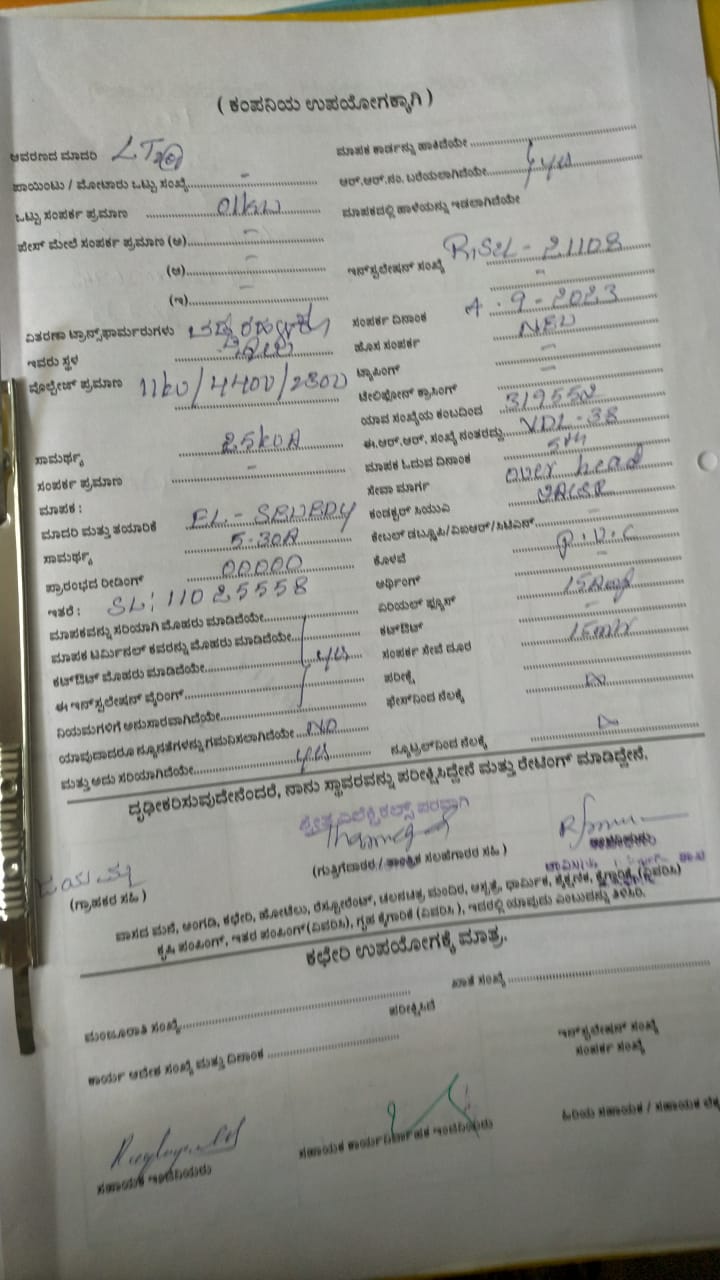 ( ಕಂಪನಿಯ ಉಪಯೋಗಕ್ಕಾಗಿ )
ಆವರಣದ ಮಾದರಿ LT2(a)
ಮಾಪಕ ಕಾರ್ಡನ್ನು ಹಾಕಿದೆಯೇ
ಪಾಯಿಂಟು / ಮೋಟಾರು ಒಟ್ಟು ಸಂಖ್ಯೆ -
ಆರ್.ಆರ್.ನಂ. ಬರೆಯಲಾಗಿದೆಯೇ yes
ಒಟ್ಟು ಸಂಪರ್ಕ ಪ್ರಮಾಣ 01kw
ಮಾಪಕದಲ್ಲಿ ಹಾಳೆಯನ್ನು ಇಡಲಾಗಿದೆಯೇ
ಫೇಸ್ ಮೇಲೆ ಸಂಪರ್ಕ ಪ್ರಮಾಣ (ಅ) -
(ಆ) -
ಇನ್‌ಸ್ಟಲೇಷನ್ ಸಂಖ್ಯೆ - 21108
(ಇ) -
ವಿತರಣಾ ಟ್ರಾನ್ಸ್‌ಫಾರ್ಮರುಗಳು
ಸಂಪರ್ಕ ದಿನಾಂಕ 4.9-2023
ಇವರು ಸ್ಥಳ
ಹೊಸ ಸಂಪರ್ಕ NEW
ವೋಲ್ಟೇಜ್ ಪ್ರಮಾಣ 11kv/440v/230v
ಟ್ಯಾಪಿಂಗ್ -
ಟೆಲಿಫೋನ್ ಕ್ರಾಸಿಂಗ್ -
ಯಾವ ಸಂಖ್ಯೆಯ ಕಂಬದಿಂದ
ಸಾಮರ್ಥ್ಯ 25kvA
ಈ.ಆರ್.ಆರ್. ಸಂಖ್ಯೆ ನಂತರದ್ದು VDL-38
ಸಂಪರ್ಕ ಪ್ರಮಾಣ -
ಮಾಪಕ ಓದುವ ದಿನಾಂಕ 5th
ಮಾಪಕ :
ಸೇವಾ ಮಾರ್ಗ over head
ಮಾದರಿ ಮತ್ತು ತಯಾರಿಕೆ
ಕಂಡಕ್ಟರ್ ಸಿಯುವಿ
ಸಾಮರ್ಥ್ಯ 5-30A
ಕೇಬಲ್ ಡಬ್ಲ್ಯೂಪಿ/ವಿಐಆರ್/ಸಿಟಿಎಸ್ -
ಪ್ರಾರಂಭದ ರೀಡಿಂಗ್ 00000
ಕೊಳವೆ P.V.C
ಇತರೆ : SL: 11025558
ಅರ್ಥಿಂಗ್ -
ಮಾಪಕವನ್ನು ಸರಿಯಾಗಿ ಮೊಹರು ಮಾಡಿದೆಯೇ
ಏರಿಯಲ್ ಫ್ಯೂಸ್ 15Amp
ಮಾಪಕ ಟರ್ಮಿನಲ್ ಕವರನ್ನು ಮೊಹರು ಮಾಡಿದೆಯೇ
ಕಟ್‌ಔಟ್ -
ಕಟ್‌ಔಟ್ ಮೊಹರು ಮಾಡಿದೆಯೇ yes
ಸಂಪರ್ಕ ಸೇವೆ ದೂರ 15mtr
ಈ ಇನ್‌ಸ್ಟಲೇಷನ್ ವೈರಿಂಗ್
ಪರೀಕ್ಷೆ
ನಿಯಮಗಳಿಗೆ ಅನುಸಾರವಾಗಿದೆಯೇ
ಫೇಸ್‌ನಿಂದ ನೆಲಕ್ಕೆ
ಯಾವುದಾದರೂ ನ್ಯೂನತೆಗಳನ್ನು ಗಮನಿಸಲಾಗಿದೆಯೇ NO
ಮತ್ತು ಅದು ಸರಿಯಾಗಿದೆಯೇ yes
ನ್ಯೂಟ್ರಲ್‌ನಿಂದ ನೆಲಕ್ಕೆ
ದೃಢೀಕರಿಸುವುದೇನೆಂದರೆ, ನಾನು ಸ್ಥಾವರವನ್ನು ಪರೀಕ್ಷಿಸಿದ್ದೇನೆ ಮತ್ತು ರೇಟಿಂಗ್ ಮಾಡಿದ್ದೇನೆ.
ಎಲೆಕ್ಟ್ರಿಕಲ್ಸ್ ಪರವಾಗಿ
(ಗ್ರಾಹಕರ ಸಹಿ)
(ಗುತ್ತಿಗೆದಾರರ / ತಾಂತ್ರಿಕ ಸಲಹೆಗಾರರ ಸಹಿ )
ವಾಸದ ಮನೆ, ಅಂಗಡಿ, ಕಛೇರಿ, ಹೋಟೆಲು, ರೆಸ್ಟೋರೆಂಟ್, ಚಲನಚಿತ್ರ ಮಂದಿರ, ಆಸ್ಪತ್ರೆ, ಧಾರ್ಮಿಕ, ಶೈಕ್ಷಣಿಕ, ಕೈಗಾರಿಕೆ (ವಿವರಿಸಿ)
ಕೃಷಿ ಪಂಪಿಂಗ್, ಇತರ ಪಂಪಿಂಗ್ (ವಿವರಿಸಿ), ಗೃಹ ಕೈಗಾರಿಕೆ (ವಿವರಿಸಿ ), ಇದರಲ್ಲಿ ಯಾವುದು ಎಂಬುದನ್ನು ತಿಳಿಸಿರಿ.
ಕಛೇರಿ ಉಪಯೋಗಕ್ಕೆ ಮಾತ್ರ.
ಮಂಜೂರಾತಿ ಸಂಖ್ಯೆ
ಖಾತೆ ಸಂಖ್ಯೆ
ಪರೀಕ್ಷಿಸಿದೆ
ಕಾರ್ಯ ಆದೇಶ ಸಂಖ್ಯೆ ಮತ್ತು ದಿನಾಂಕ
ಇನ್‌ಸ್ಟಲೇಷನ್ ಸಂಖ್ಯೆ
ಸಂಪರ್ಕ ಸಂಖ್ಯೆ
ಸಹಾಯಕ ಇಂಜಿನಿಯರು
ಸಹಾಯಕ ಕಾರ್ಯನಿರ್ವಾಹಕ ಇಂಜಿನಿಯರು
ಹಿರಿಯ ಸಹಾಯಕ / ಸಹಾಯಕ